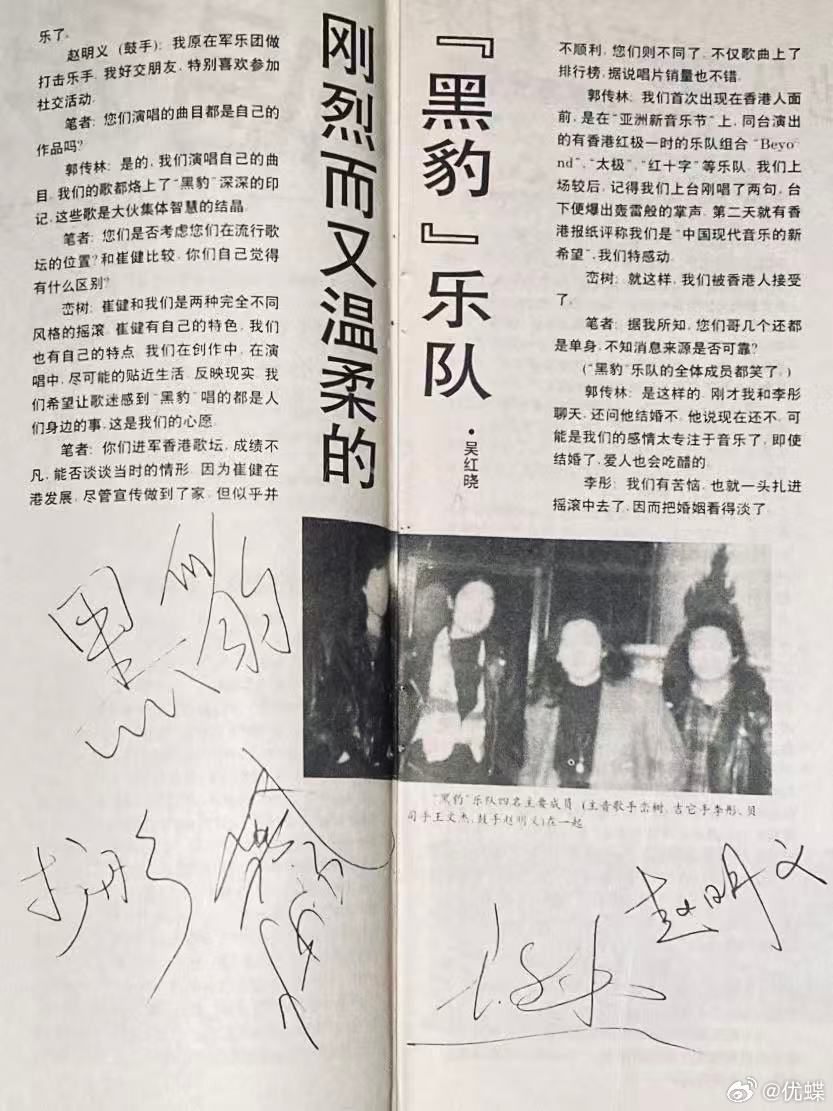 乐了.
赵明义(鼓手): 我原在军乐团做
打击乐手. 我好交朋友, 特别喜欢参加
社交活动.
笔者: 您们演唱的曲目都是自己的
作品吗?
郭传林: 是的, 我们演唱自己的曲
目, 我们的歌都烙上了“黑豹”深深的印
记, 这些歌是大伙集体智慧的结晶.
笔者: 您们是否考虑您们在流行歌
坛的位置? 和崔健比较, 你们自己觉得
有什么区别?
峦树: 崔健和我们是两种完全不同
风格的摇滚. 崔健有自己的特色, 我们
也有自己的特点. 我们在创作中, 在演
唱中, 尽可能的贴近生活, 反映现实. 我
们希望让歌迷感到“黑豹”唱的都是人
们身边的事, 这是我们的心愿.
笔者: 你们进军香港歌坛, 成绩不
凡, 能否谈谈当时的情形. 因为崔健在
港发展, 尽管宣传做到了家, 但似乎并
刚烈而又温柔的
『黑豹』乐队
·吴红晓
不顺利, 您们则不同了. 不仅歌曲上了
排行榜, 据说唱片销量也不错.
郭传林: 我们首次出现在香港人面
前, 是在“亚洲新音乐节”上, 同台演出
的有香港红极一时的乐队组合“Beyo
nd”, “太极”, “红十字”等乐队. 我们上
场较后, 记得我们上台刚唱了两句, 台
下便爆出轰雷般的掌声. 第二天就有香
港报纸评称我们是“中国现代音乐的新
希望”, 我们特感动.
峦树: 就这样, 我们被香港人接受
了.
笔者: 据我所知, 您们哥几个还都
是单身, 不知消息来源是否可靠?
(“黑豹”乐队的全体成员都笑了.)
郭传林: 是这样的. 刚才我和李彤
聊天, 还问他结婚不, 他说现在还不, 可
能是我们的感情太专注于音乐了, 即使
结婚了, 爱人也会吃醋的.
李彤: 我们有苦恼, 也就一头扎进
摇滚中去了, 因而把婚姻看得淡了.
“黑豹”乐队四名主要成员 (主音歌手峦树, 吉它手李彤、贝
司手王文杰, 鼓手赵明义)在一起
黑豹
李彤
赵明义
@优蝶